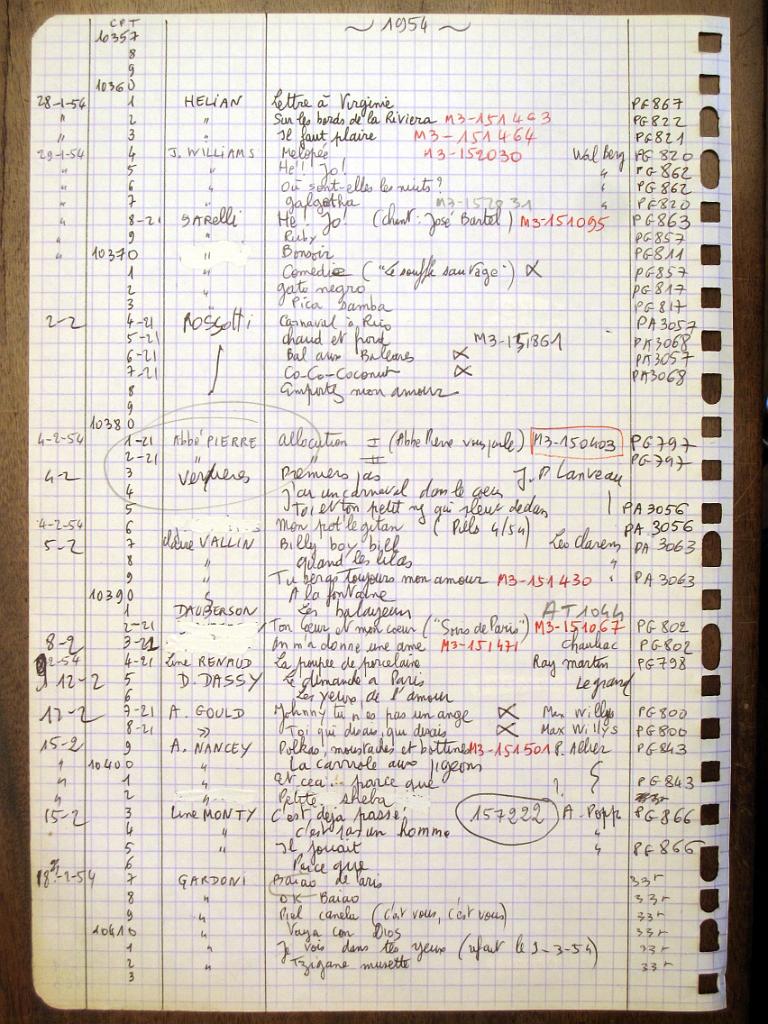 ~ 1954 ~
CPT
10357
8
9
10360
28-1-54 1 HELIAN Lettre à Virginie PG867
" 2 " Sur les bords de la Riviera M3-151463 PG822
" 3 " Il faut plaire M3-151464 PG821
29-1-54 4 J. WILLIAMS Melopée M3-152030 Wal Berg PG820
" 5 " He! Jo! " PG862
" 6 " Où sont-elles les nuits? " PG862
" 7 " galgotha " PG820
" 8-21 SARELLI He! Jo! (chant: José Bartel) M3-151095 PG863
" 9 " Ruby PG857
" 10370 " Bonsoir PG811
1 " Comedie ("Le souffle sauvage") PG857
2 " gato negro PG817
3 " Pica samba PG817
2-2 4-21 ROSSOTTI Carnaval à Rio PA3057
5-21 chaud et froid M3-151861 PA3068
6-21 Bal aux Baleares PA3057
7-21 Co-Co-Coconut PA3068
8 emportez mon amour
9
10380
4-2-54 1-21 Abbé PIERRE allocution I (Abbé Pierre vous parle) M3-150403 PG797
2-21 " II PG797
4-2 3 Verrières Premiers pas J. P. Lanveau
4 J'ai un carnaval dans le coeur
5 Toi et ton petit qui pleut dedans PA3056
4-2-54 6 Mon pot' le gitan (Piels 4/54) PA 3056
5-2 7 claire VALLIN Billy boy bill Leo clarens PA 3063
8 " quand les lilas "
9 " Tu berces toujours mon amour M3-151430 " PA3063
10390 " A la fontaine
1 DAUBERSON Les balayeurs AT1044
2-21 Ton coeur et mon coeur ("Soirs de Paris") M3-151067 PG802
8-2 3-21 On m'a donné une ame M3-151471 Chauliac PG802
4-21 Line RENAUD La poupée de porcelaine Ray Martin PG798
12-2 5 D. DASSY Le dimanche à Paris Legrand
6 Les yeux de l'amour
12-2 7-21 A. GOULD Johnny tu n'es pas un ange Max Willys PG800
8-21 " Toi qui disais, qui disais Max Willys PG800
15-2 9 A. NANCEY Polkas, moustaches et bottines M3-151501 P. Allier PG843
" 10400 " La carriole aux pigeons
" 1 " et ceci.. parce que ? PG843
" 2 " Petite sheba 33r
15-2 3 Line MONTY C'est déjà passé 157222 A. Popp PG866
4 " C'est pas un homme "
5 " Il jouait " PG866
6 Parce que
18-2-54 7 GARDONI Baiao de Paris 33r
8 " OK Baiao 33r
9 " Piel canela (c'est vous, c'est vous) 33r
10410 " Vaya con Dios 33r
1 " Je vois dans tes yeux (refait le 9-3-54) 33r
2 " Tzigane musette 33r
3